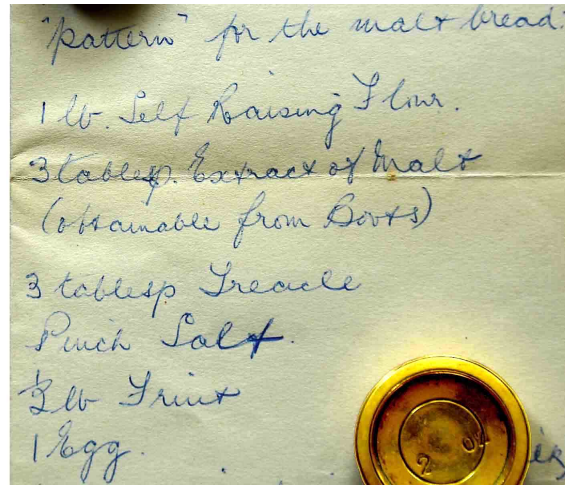 "pattern" for the malt bread:
1 lb. Self Raising Flour.
3 tablesp. Extract of Malt
(obtainable from Boots)
3 tablesp Treacle
Pinch Salt.
½ lb Fruit
1 Egg.
2 OZ